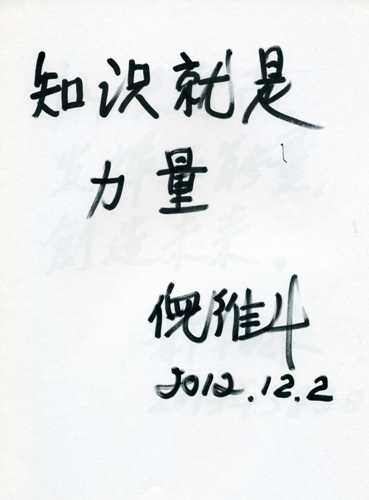 知识就是
力量
倪维斗
2012.12.2